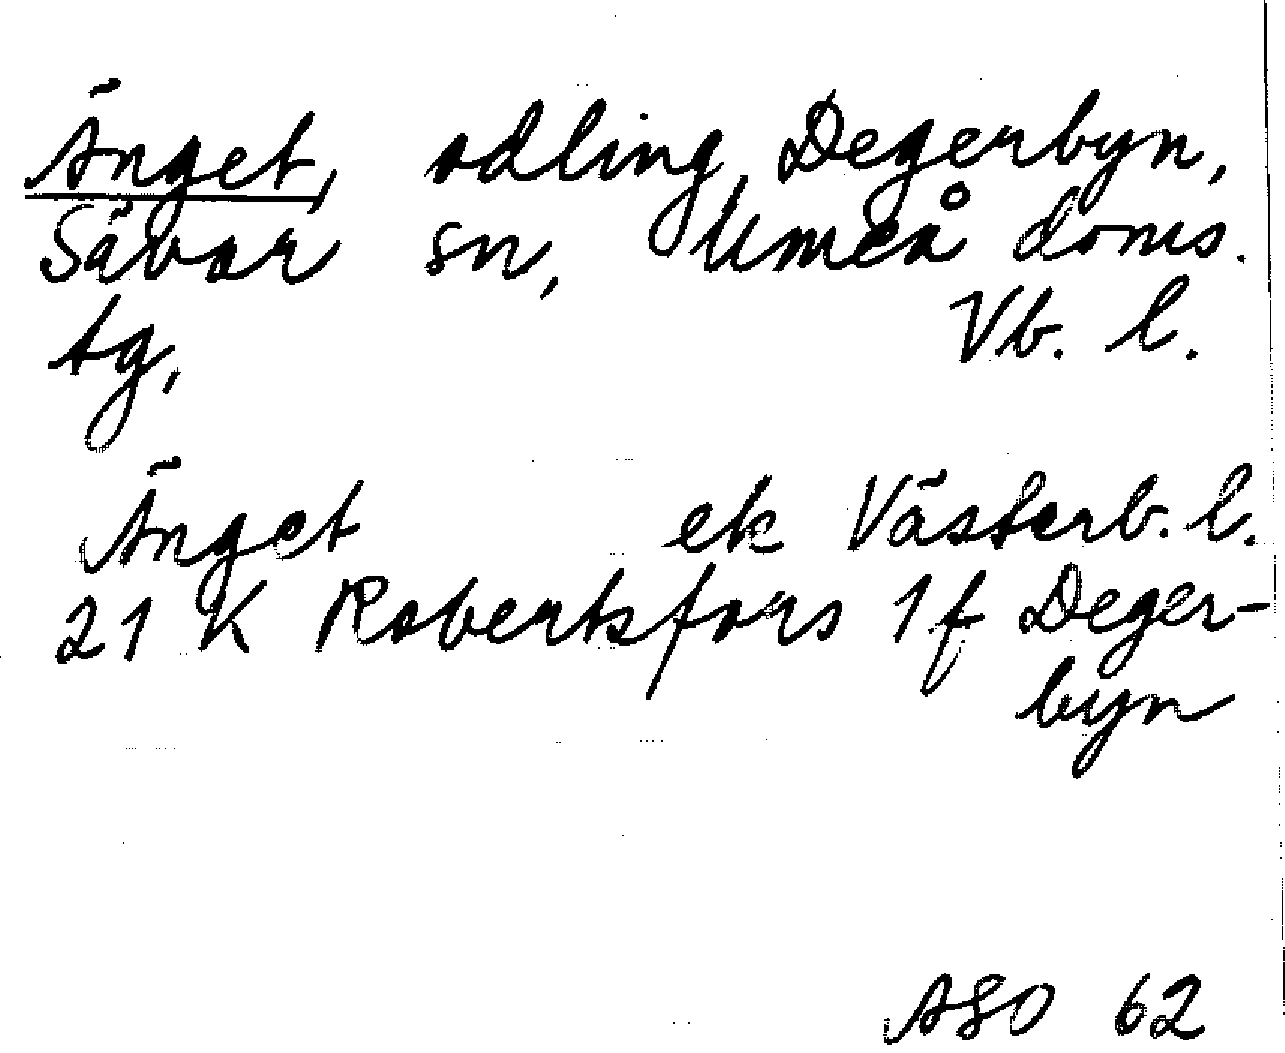 Änget, odling, Degerbyn,
Sävar sn, Umeå doms.
tg, Vb. l.
Änget ek Västerb. l.
21 K Robertsfors 1f Deger-
byn
ASO 62